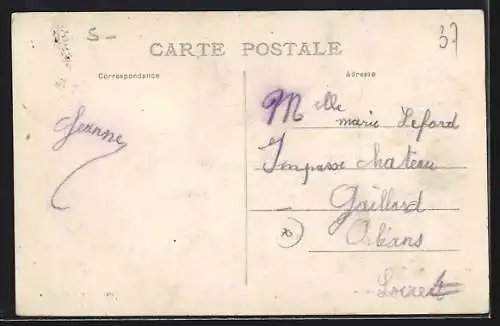 5-
37
CARTE POSTALE
Correspondance
Adresse
Jeanne
Mlle
marie Lefard
Impasse chateau
Gaillard
Orléans
Loiret